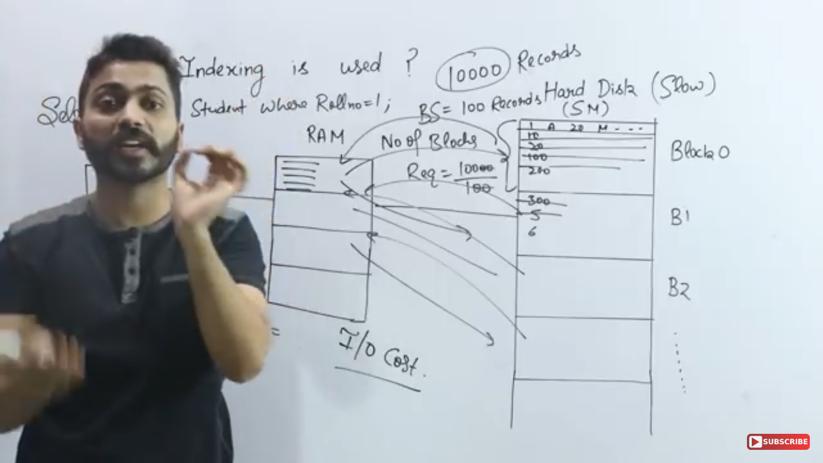 Indexing is used ?
10000 Records
Student where Rollno=1;
BS= 100 Records
Hard Disk (Slow)
(SM)
RAM
No of Blocks
Req = 10000
100
1 A 20 M - - -
10
20
100
200
Block 0
300
5
6
B1
B2
I/O Cost.
SUBSCRIBE